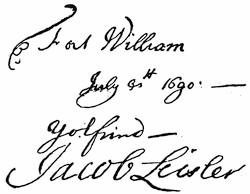 Fort William
July 1690:
Yor. friend
Jacob Leisler